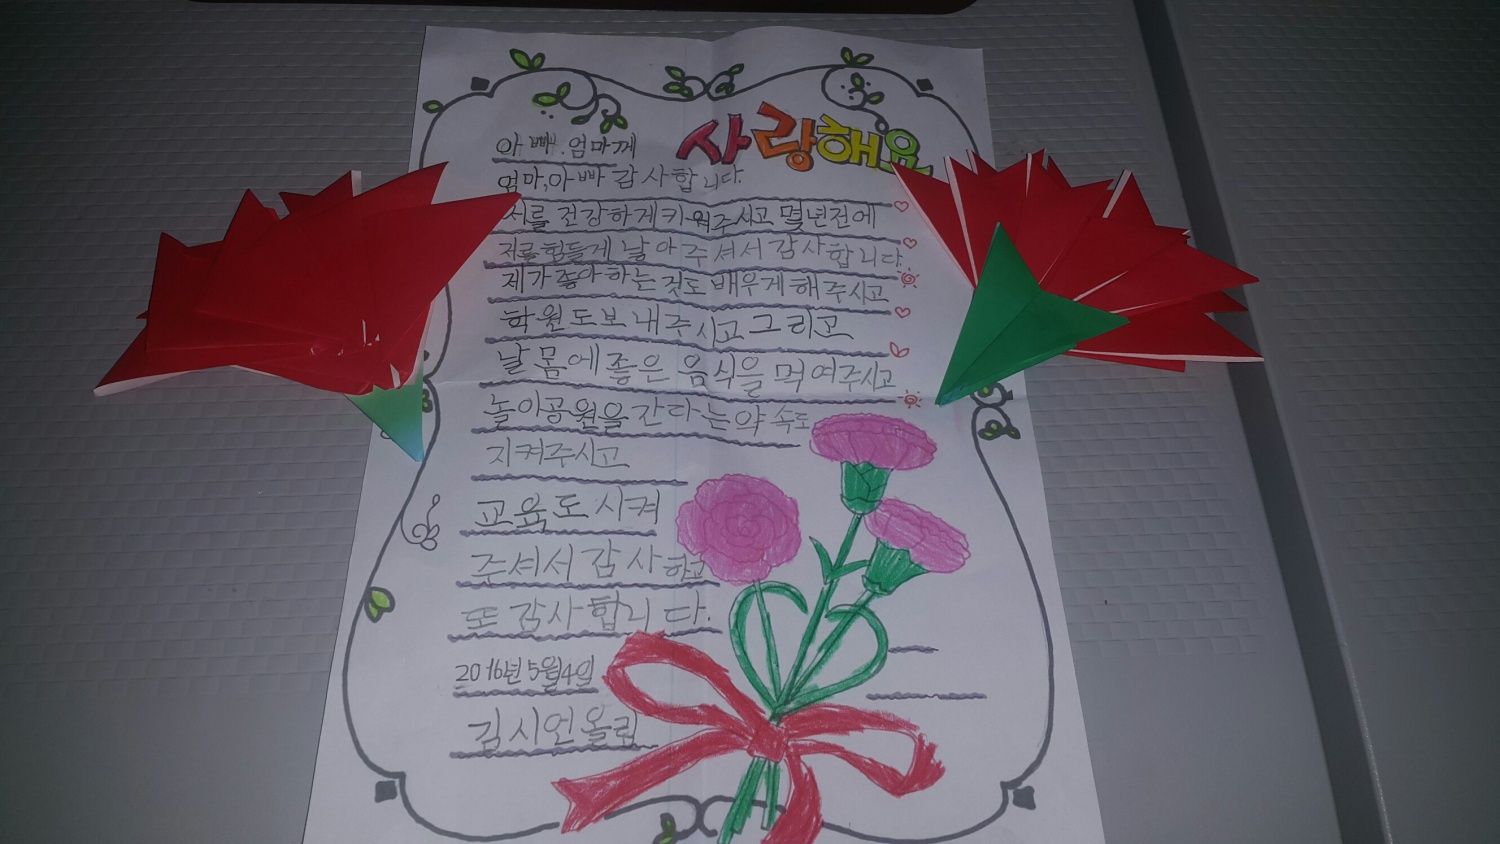 사랑해요
아빠.엄마께
엄마,아빠 감사합니다.
저를 건강하게 키워주시고 몇년전에
저를 힘들게 날아주셔서 감사합니다.
제가 좋아하는 것도 배우게 해주시고
학원도보내주시고 그리고
날 몸에 좋은 음식을 먹여주시고
놀이공원을 간다는 약속도
지켜주시고
교육도시켜
주셔서 감사하고
또 감사합니다.
2016년 5월4일
김시언올림